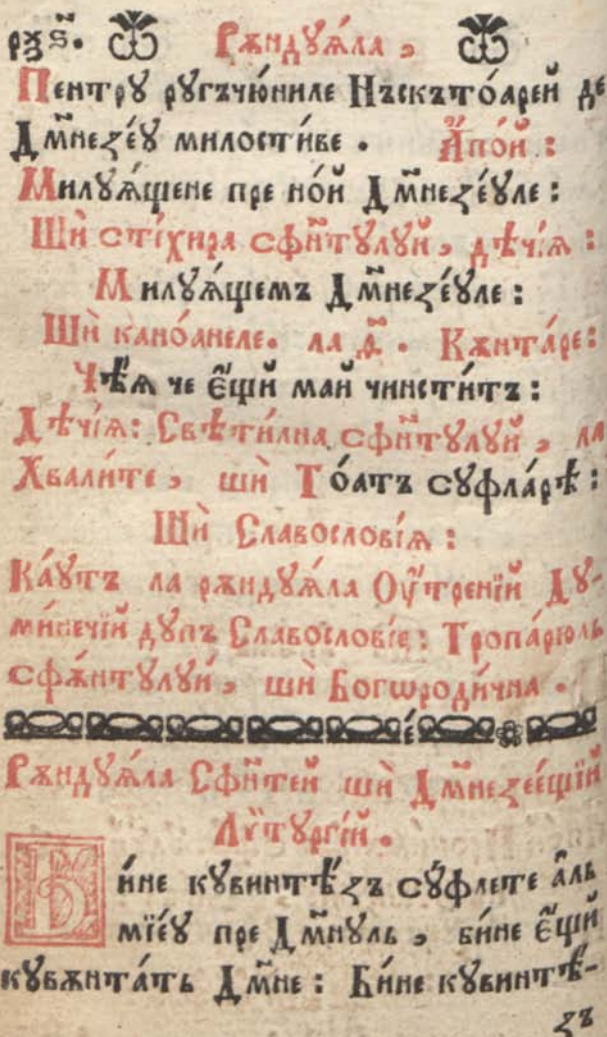 рѯ҃ѕ. Рѫндуꙗ́ла ,
Пентрꙋ рꙋгъчю́ниле Нъскътоа́рей де
Дм҃незе́ꙋ милости́ве . А҆́пой :
Милꙋѧ́щене пре но́й Дм҃незе́ꙋле :
Шѝ сті́хира сфн҃тꙋлꙋй , дѣчі́ѧ :
Милꙋѧ́щемъ Дм҃незе́ꙋле :
Шѝ кано́анеле . ла д҃ . Кѫнта́ре :
Чѣ́ѧ че є҆́щй май чинсти́тъ :
Дѣчі́ѧ : Свѣти́лна сфн҃тꙋлꙋй , ла
Хвали́те , шѝ То́атъ сꙋфла́рѣ :
Шѝ Славослові́ѧ :
Ка́ꙋтъ ла рѫндꙋѧ́ла Оу҆́тренїй Дꙋ-
минечїй дꙋпъ Славослові́е : Тропа́рюль
сфѫ́нтꙋлꙋй , шѝ Богѡроди́чна .
Рѫндꙋѧ́ла Сфн҃тей шѝ Дм҃незее́щїй
Лїтꙋргі́й .
Би́не кꙋвинтѣ́зъ сꙋ́флете а҆́ль
мїе́ꙋ пре Дм҃нꙋль , би́не є҆́щй
кꙋвѫнта́ть Дм҃не : Би́не кꙋвинтѣ́-
зъ